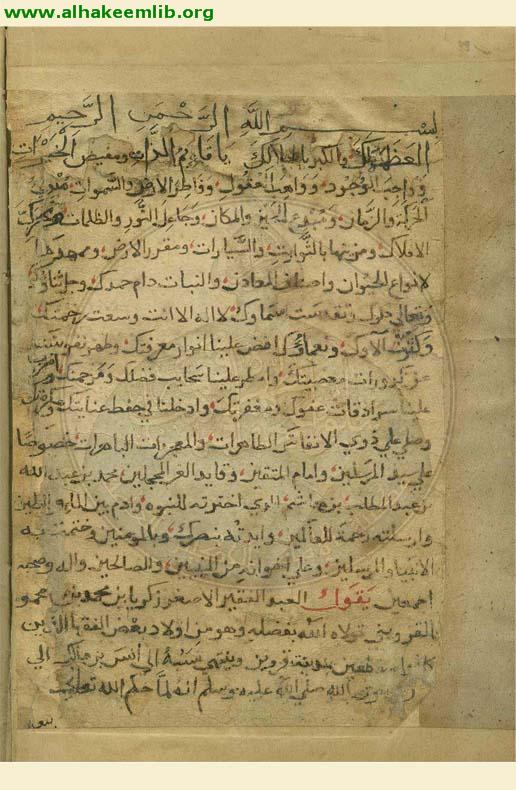 www.alhakeemlib.org
بسم الله الرحمن الرحيم
العظمة لك والكبرياء لجلالك يا قايم الذات ومفيض الخيرات
وواجب الوجود وواهب العقول وفاطر الارض والسموات مبدي
الحركة والزمان ومبدع الحيز والمكان وجاعل النور والظلمات ومحرك
الافلاك ومزينها بالثوابت والسيارات ومقرر الارض وممهدها
لانواع الحيوان واصناف المعادن والنبات دام حمدك وجل ثناوك
وتعالى ذكرك وتقدست اسماوك لا اله الا انت وسعت رحمتك
وكثرت آلاوك ونعماوك افض علينا انوار معرفتك وطهر نفوسنا
عن كدورات معصيتك وامطر علينا سحايب فضلك ومرحمتك واضرب
علينا سرادقات عفوك ومغفرتك وادخلنا في حفظ عنايتك
وصل على ذوي الانفاس الطاهرات والمعجزات الباهرات خصوصا
على سيد المرسلين وامام المتقين وقايد الغر المحجلين محمد بن عبد الله
بن عبد المطلب بن هاشم الذي اخترته للنبوه وادم بين الماء والطين
وارسلته رحمة للعالمين وايدته بنصرك وبالمومنين وختمت به
الانبياء والمرسلين وعلى اخوانه من النبيين والصالحين واله وصحبه
اجمعين يقول العبد الفقير الاصغر زكريا بن محمد بن محمود
القزويني تولاه الله بفضله وهو من اولاد بعض الفقها الذين
كانوا بمدينة قزوين وينتهي نسبه الى انس بن مالك
رسول الله صلى الله عليه وسلم انه لما حكم الله تعالى